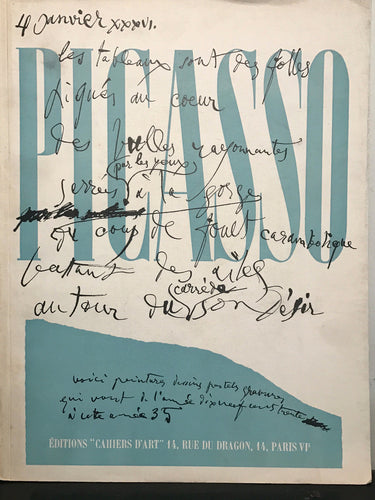 4 janvier XXXVI.
PICASSO
les tableaux sont des folles
piqués au coeur
des bulles rayonnantes
par les yeux
serrés à la gorge
du coup de fouet
battant des ailes
autour du carré de son désir
voici peintures dessins pastels gravures
qui vont de l'année dixneuf cent trente
à cette année 35
ÉDITIONS "CAHIERS D'ART" 14, RUE DU DRAGON, 14, PARIS VIᵉ